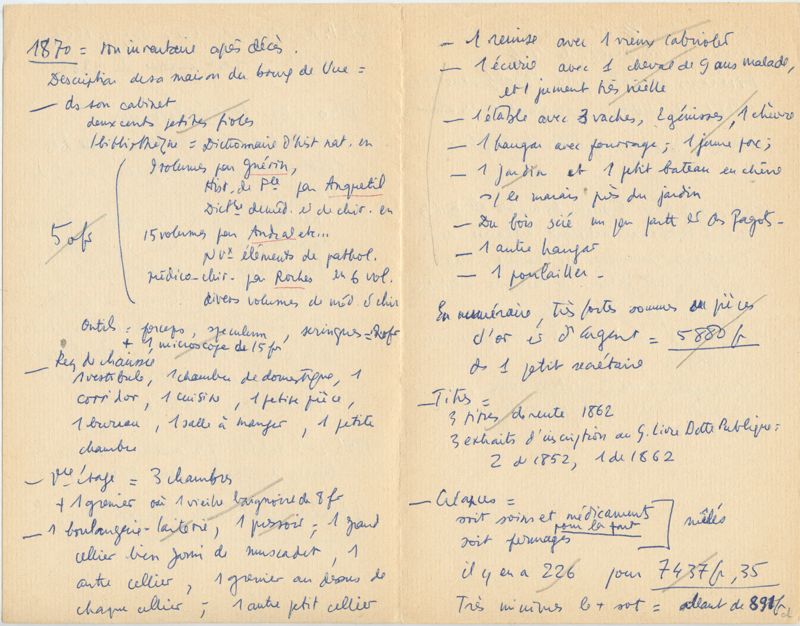 1870 = son inventaire après décès.
Description de sa maison du bourg de Vue =
— ds son cabinet
deux cents petites fioles
1 bibliothèque = Dictionnaire d'hist nat. en
9 volumes par Guérin,
Hist. de Fce par Anquetil
Dictre de méd. et de chir. en
50 fr
15 volumes par Andral etc...
Nvx éléments de pathol.
médico-chir. par Roches en 6 vol.
divers volumes de méd et chir
Outils = forceps, speculum, seringues =
+ 1 microscope de 15 fr
— Rez de chaussée
1 vestibule, 1 chambre de domestique, 1
corridor, 1 cuisine, 1 petite pièce,
1 bureau, 1 salle à manger, 1 petite
chambre
— étage = 3 chambres
+ 1 grenier où 1 vieille baignoire de 8 fr
— 1 boulangerie-laiterie, 1 pressoir; 1 grand
cellier bien garni de muscadet, 1
autre cellier, 1 grenier au dessus de
chaque cellier; 1 autre petit cellier
— 1 remise avec 1 vieux cabriolet
— 1 écurie avec 1 cheval de 9 ans malade,
et 1 jument très vieille
— 1 étable avec 3 vaches, 2 génisses, 1 chèvre
— 1 hangar avec fourrage; 1 jeune porc;
— 1 jardin et 1 petit bateau en chêne
s/ le marais près du jardin
— Du bois scié un peu partt et des fagots.
— 1 autre hangar
— 1 poulailler.
En numéraire, très fortes sommes en pièces
d'or et d'argent = 5880 fr
ds 1 petit secrétaire
— Titres =
3 titres de rente 1862
3 extraits d'inscription au G. Livre Dette Publique:
2 de 1852, 1 de 1862
— Créances =
soit soins et médicaments
pour la part
soit fermages
mêlés
il y en a 226 pour 7437 fr, 35
Très minimes le + svt = allant de 891 fr